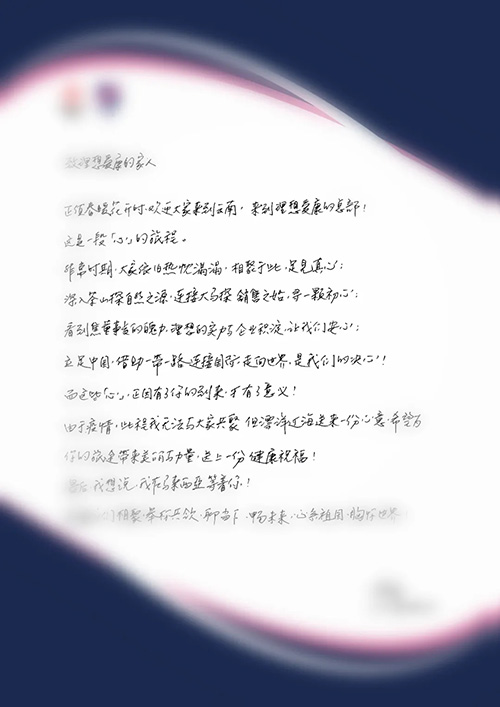 致理想爱康的家人
正值春暖花开时,欢迎大家来到云南,来到理想爱康的总部!
这是一段「心」的旅程。
非常时期,大家依旧热忱满满,相聚于此,足见真心;
深入茶山探自然之源,连接大马探销售之始,寻一颗初心;
看到思董事长的魄力,理想的实力与企业积淀,让我们安心;
立足中国,借助一带一路连接国际走向世界,是我们的决心!
而这些「心」,正因有了你的到来,才有了意义!
由于疫情,此程我无法与大家共聚但漂洋过海送来一份心意,希望为
你的旅途带来美好与力量,送上一份健康祝福!
我想说,我在马来西亚等着你!
相聚,举杯共饮,聊当下,畅未来,心系祖国,胸怀世界